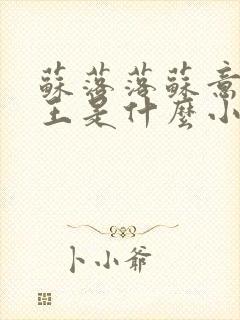 蘇落落蘇意
王是什麼小
卜小爺